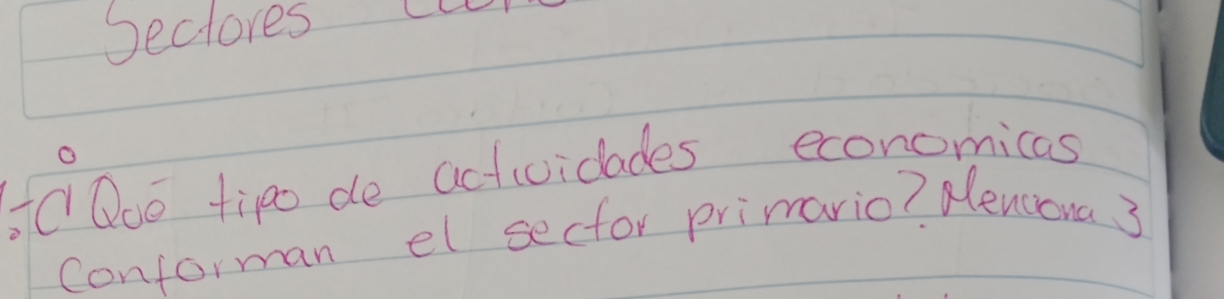 Sectores
1.- ¿Qué tipo de actividades economicas
conforman el sector primario? Menciona 3